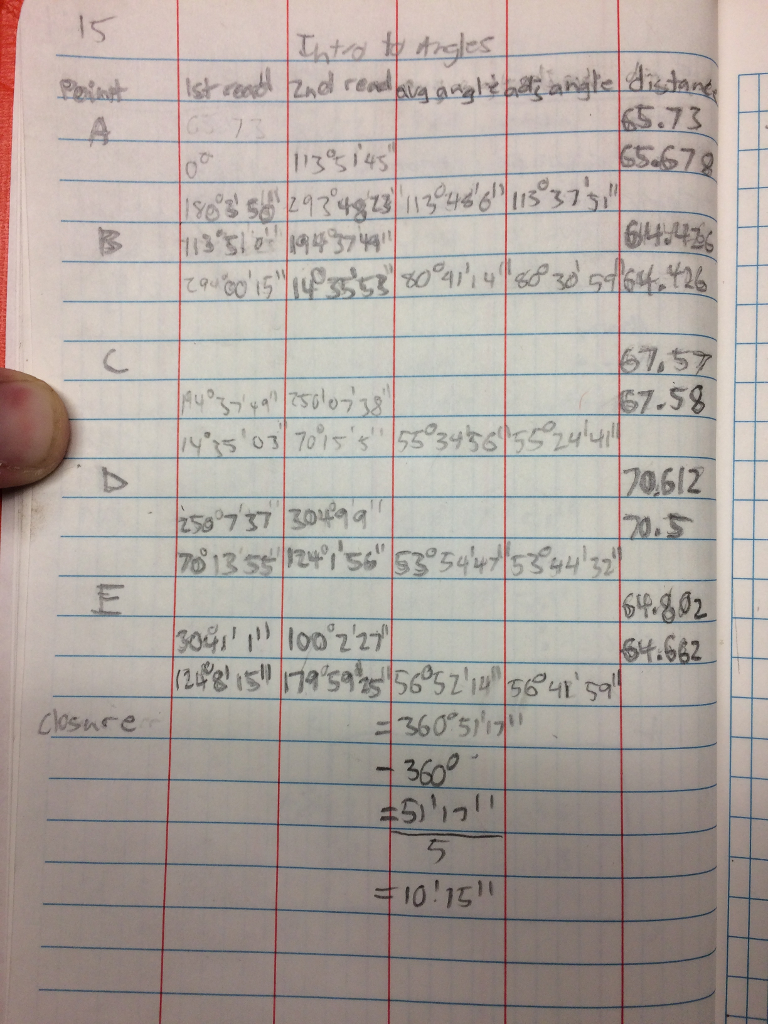 15
Intro to Angles
Point 1st read 2nd read avg angle adj angle distance
A 65.73 65.73
0° 113°51'45" 65.678
180°3'50" 293°48'23" 113°48'6" 113°37'51"
B 113°51'0" 194°37'49" 64.426
290°00'15" 14°35'53" 80°41'14" 80°30'59" 64.426
C 67.57
194°37'49" 250°07'38" 67.58
14°35'03" 70°15'5" 55°34'56" 55°24'41"
D 70.612
250°7'37" 304°9'9" 70.5
70°13'55" 124°1'56" 53°54'47" 53°44'32"
E 64.802
304°1'1" 100°2'27" 64.662
124°8'15" 179°59'25" 56°52'14" 56°41'59"
Closure = 360°51'17"
- 360°
= 51'17"
5
= 10'15"